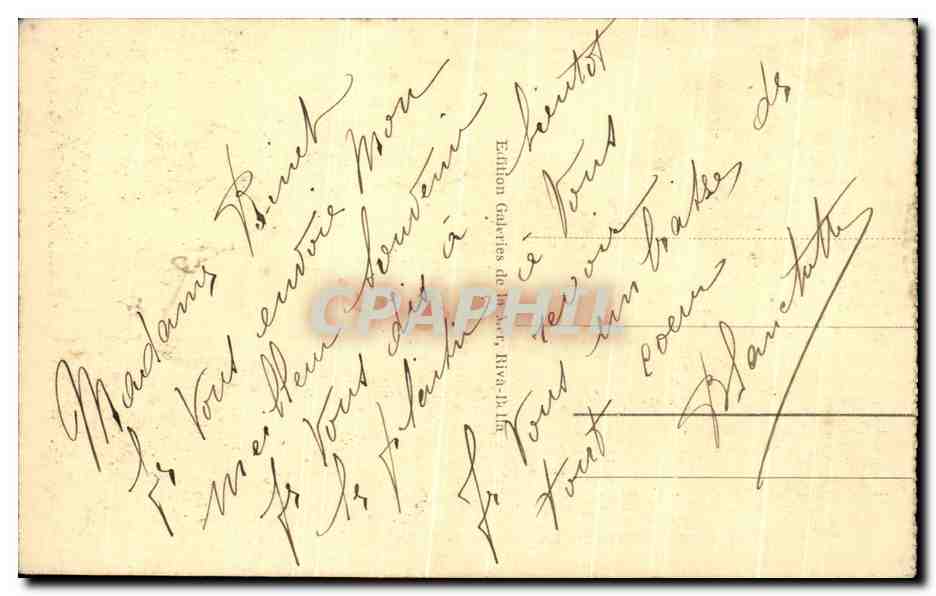 Madame Binet
Je Vous envoie Mon
meilleur Souvenir
Je Vous dis à bientôt
le plaisir à Vous
revoir
Je Vous embrasse de
tout coeur
Blanchette
Edition Galeries de la Mer, Riva-Bella
CPAPHIL